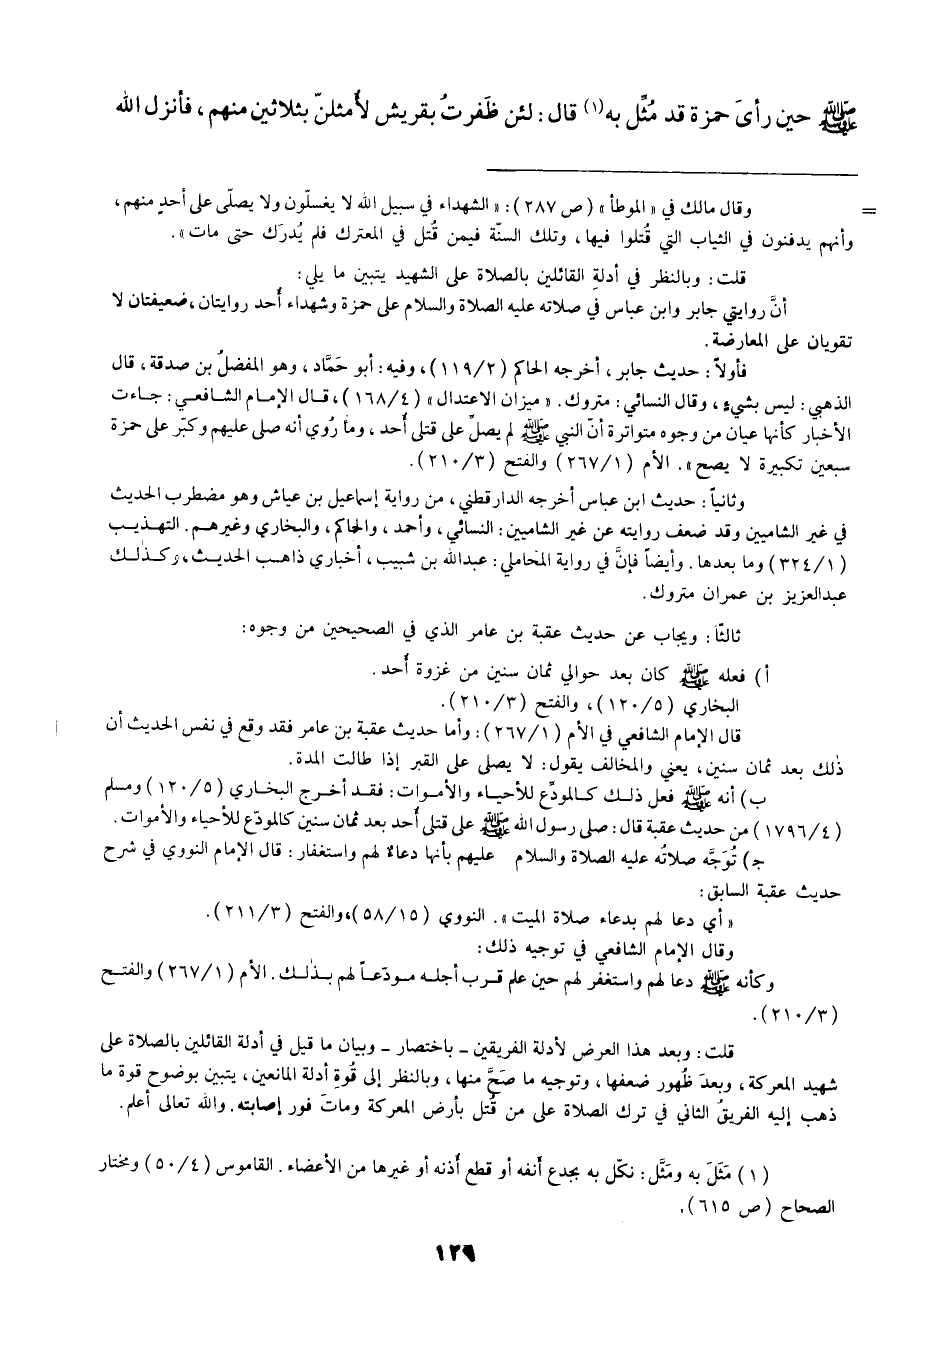 ﷺ حين رأىَ حمزة قد مُثِّل به(١) قال: لئن ظَفرتُ بقريش لأمثلنّ بثلاثين منهم، فأنزل الله
= وقال مالك في «الموطأ» (ص ٢٨٧): «الشهداء في سبيل الله لا يغسلّون ولا يصلّى على أحدٍ منهم،
وأنهم يدفنون في الثياب التي قُتلوا فيها، وتلك السنّة فيمن قُتل في المعترك فلم يُدرَك حتى مات».
قلت: وبالنظر في أدلةِ القائلين بالصلاة على الشهيد يتبين ما يلي:
أنَّ روايتي جابر وابن عباس في صلاته عليه الصلاة والسلام على حمزة وشهداء أُحد روايتان، ضعيفتان لا
تقويان على المعارضة.
فأولاً: حديث جابر، أخرجه الحاكم (١١٩/٢)، وفيه: أبو حمَّاد، وهو المفضلُ بن صدقة، قال
الذهبي: ليس بشيءٍ، وقال النسائي: متروك. «ميزان الاعتدال» (١٦٨/٤)، قال الإمام الشافعي: جاءت
الأخبار كأنها عيان من وجوه متواترة أنّ النبي ﷺ لم يصلِّ على قتلى أحد، وما رُوي أنه صلى عليهم وكبّر على حمزة
سبعين تكبيرة لا يصح». الأم (٢٦٧/١) والفتح (٢١٠/٣).
وثانياً: حديث ابن عباس أخرجه الدارقطني، من رواية إسماعيل بن عياش وهو مضطرب الحديث
في غير الشاميين وقد ضعف روايته عن غير الشاميين: النسائي، وأحمد، والحاكم، والبخاري وغيرهم. التهذيب
(٣٢٤/١) وما بعدها. وأيضاً فإنَّ في رواية المحاملي: عبدالله بن شبيب، أخباري ذاهب الحديث، وكذلك
عبدالعزيز بن عمران متروك.
ثالثاً: ويجاب عن حديث عقبة بن عامر الذي في الصحيحين من وجوه:
أ) فعله ﷺ كان بعد حوالي ثمان سنين من غزوة أُحد.
البخاري (١٢٠/٥)، والفتح (٢١٠/٣).
قال الإمام الشافعي في الأم (٢٦٧/١): وأما حديث عقبة بن عامر فقد وقع في نفس الحديث أن
ذلك بعد ثمان سنين، يعني والمخالف يقول: لا يصلى على القبر إذا طالت المدة.
ب) أنه ﷺ فعل ذلك كالمودّع للأحياء والأموات: فقد أخرج البخاري (١٢٠/٥) ومسلم
(١٧٩٦/٤) من حديث عقبة قال: صلى رسول الله ﷺ على قتلى أحد بعد ثمان سنين كالمودّع للأحياء والأموات.
جـ) تُوَجَّه صلاتُه عليه الصلاة والسلام عليهم بأنها دعاء لهم واستغفار: قال الإمام النووي في شرح
حديث عقبة السابق:
«أي دعا لهم بدعاء صلاة الميت». النووي (٥٨/١٥)، والفتح (٢١١/٣).
وقال الإمام الشافعي في توجيه ذلك:
وكأنه ﷺ دعا لهم واستغفر لهم حين علم قرب أجله مودّعاً لهم بذلك. الأم (٢٦٧/١) والفتح
(٢١٠/٣).
قلت: وبعد هذا العرض لأدلة الفريقين - باختصار - وبيان ما قيل في أدلة القائلين بالصلاة على
شهيد المعركة، وبعدَ ظُهور ضعفها، وتوجيه ما صَحَّ منها، وبالنظر إلى قُوةِ أدلة المانعين، يتبين بوضوح قوة ما
ذهب إليه الفريقُ الثاني في ترك الصلاة على من قُتل بأرض المعركة وماتَ فور إصابته. والله تعالى أعلم.
(١) مَثَلَ به ومَثَّل: نكّل به بجدع أنفه أو قطع أذنه أو غيرها من الأعضاء. القاموس (٥٠/٤) ومختار
الصحاح (ص ٦١٥).
١٢٩